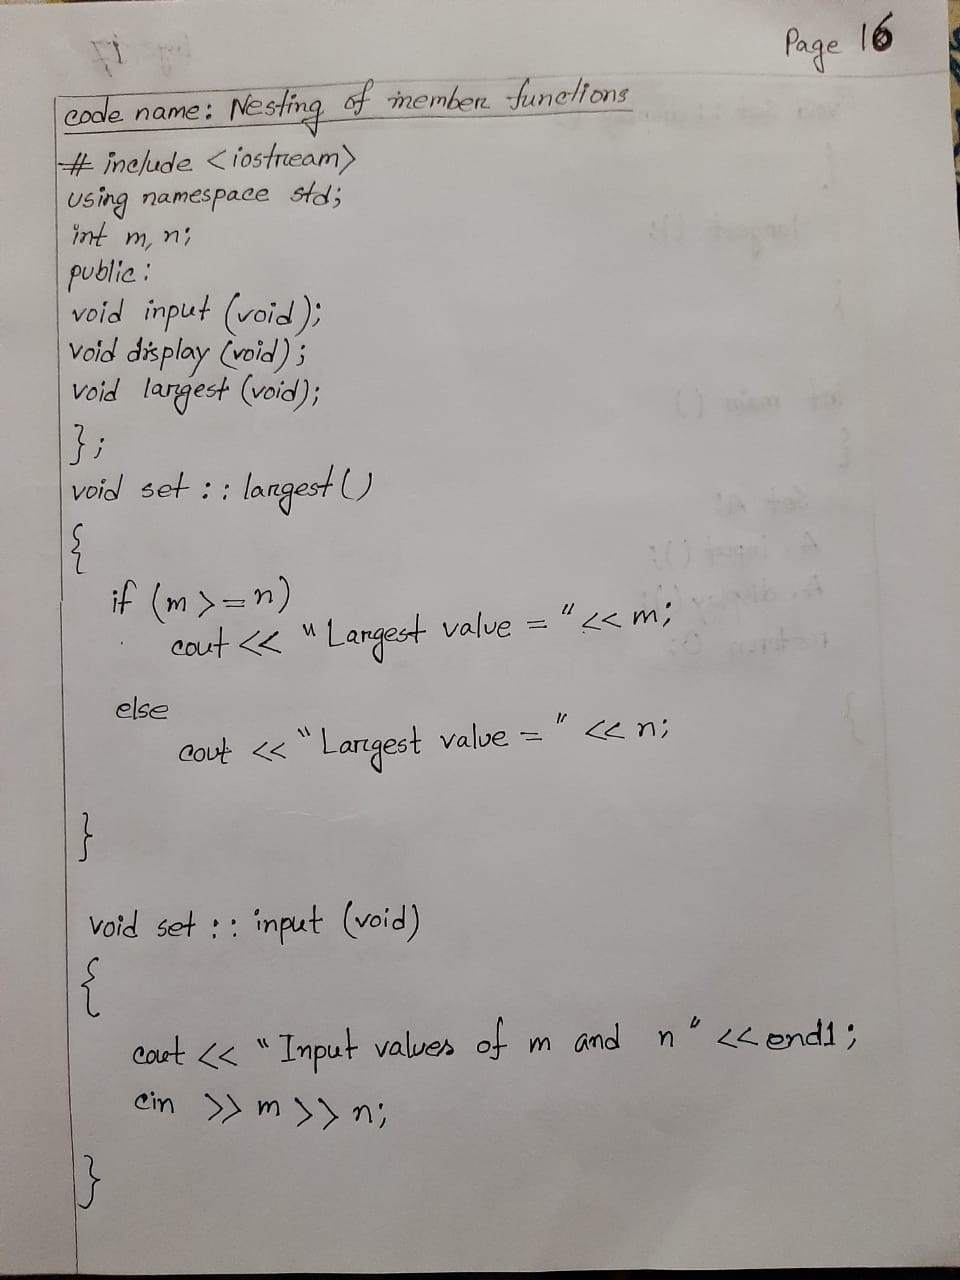 Page 16
code name: Nesting of member functions
# include <iostream>
using namespace std;
int m, n;
public:
void input (void);
void display (void);
void largest (void);
};
void set :: largest ()
{
if (m >= n)
cout << "Largest value = " << m;
else
cout << "Largest value = " << n;
}
void set :: input (void)
{
cout << "Input values of m and n" << end1;
cin >> m >> n;
}